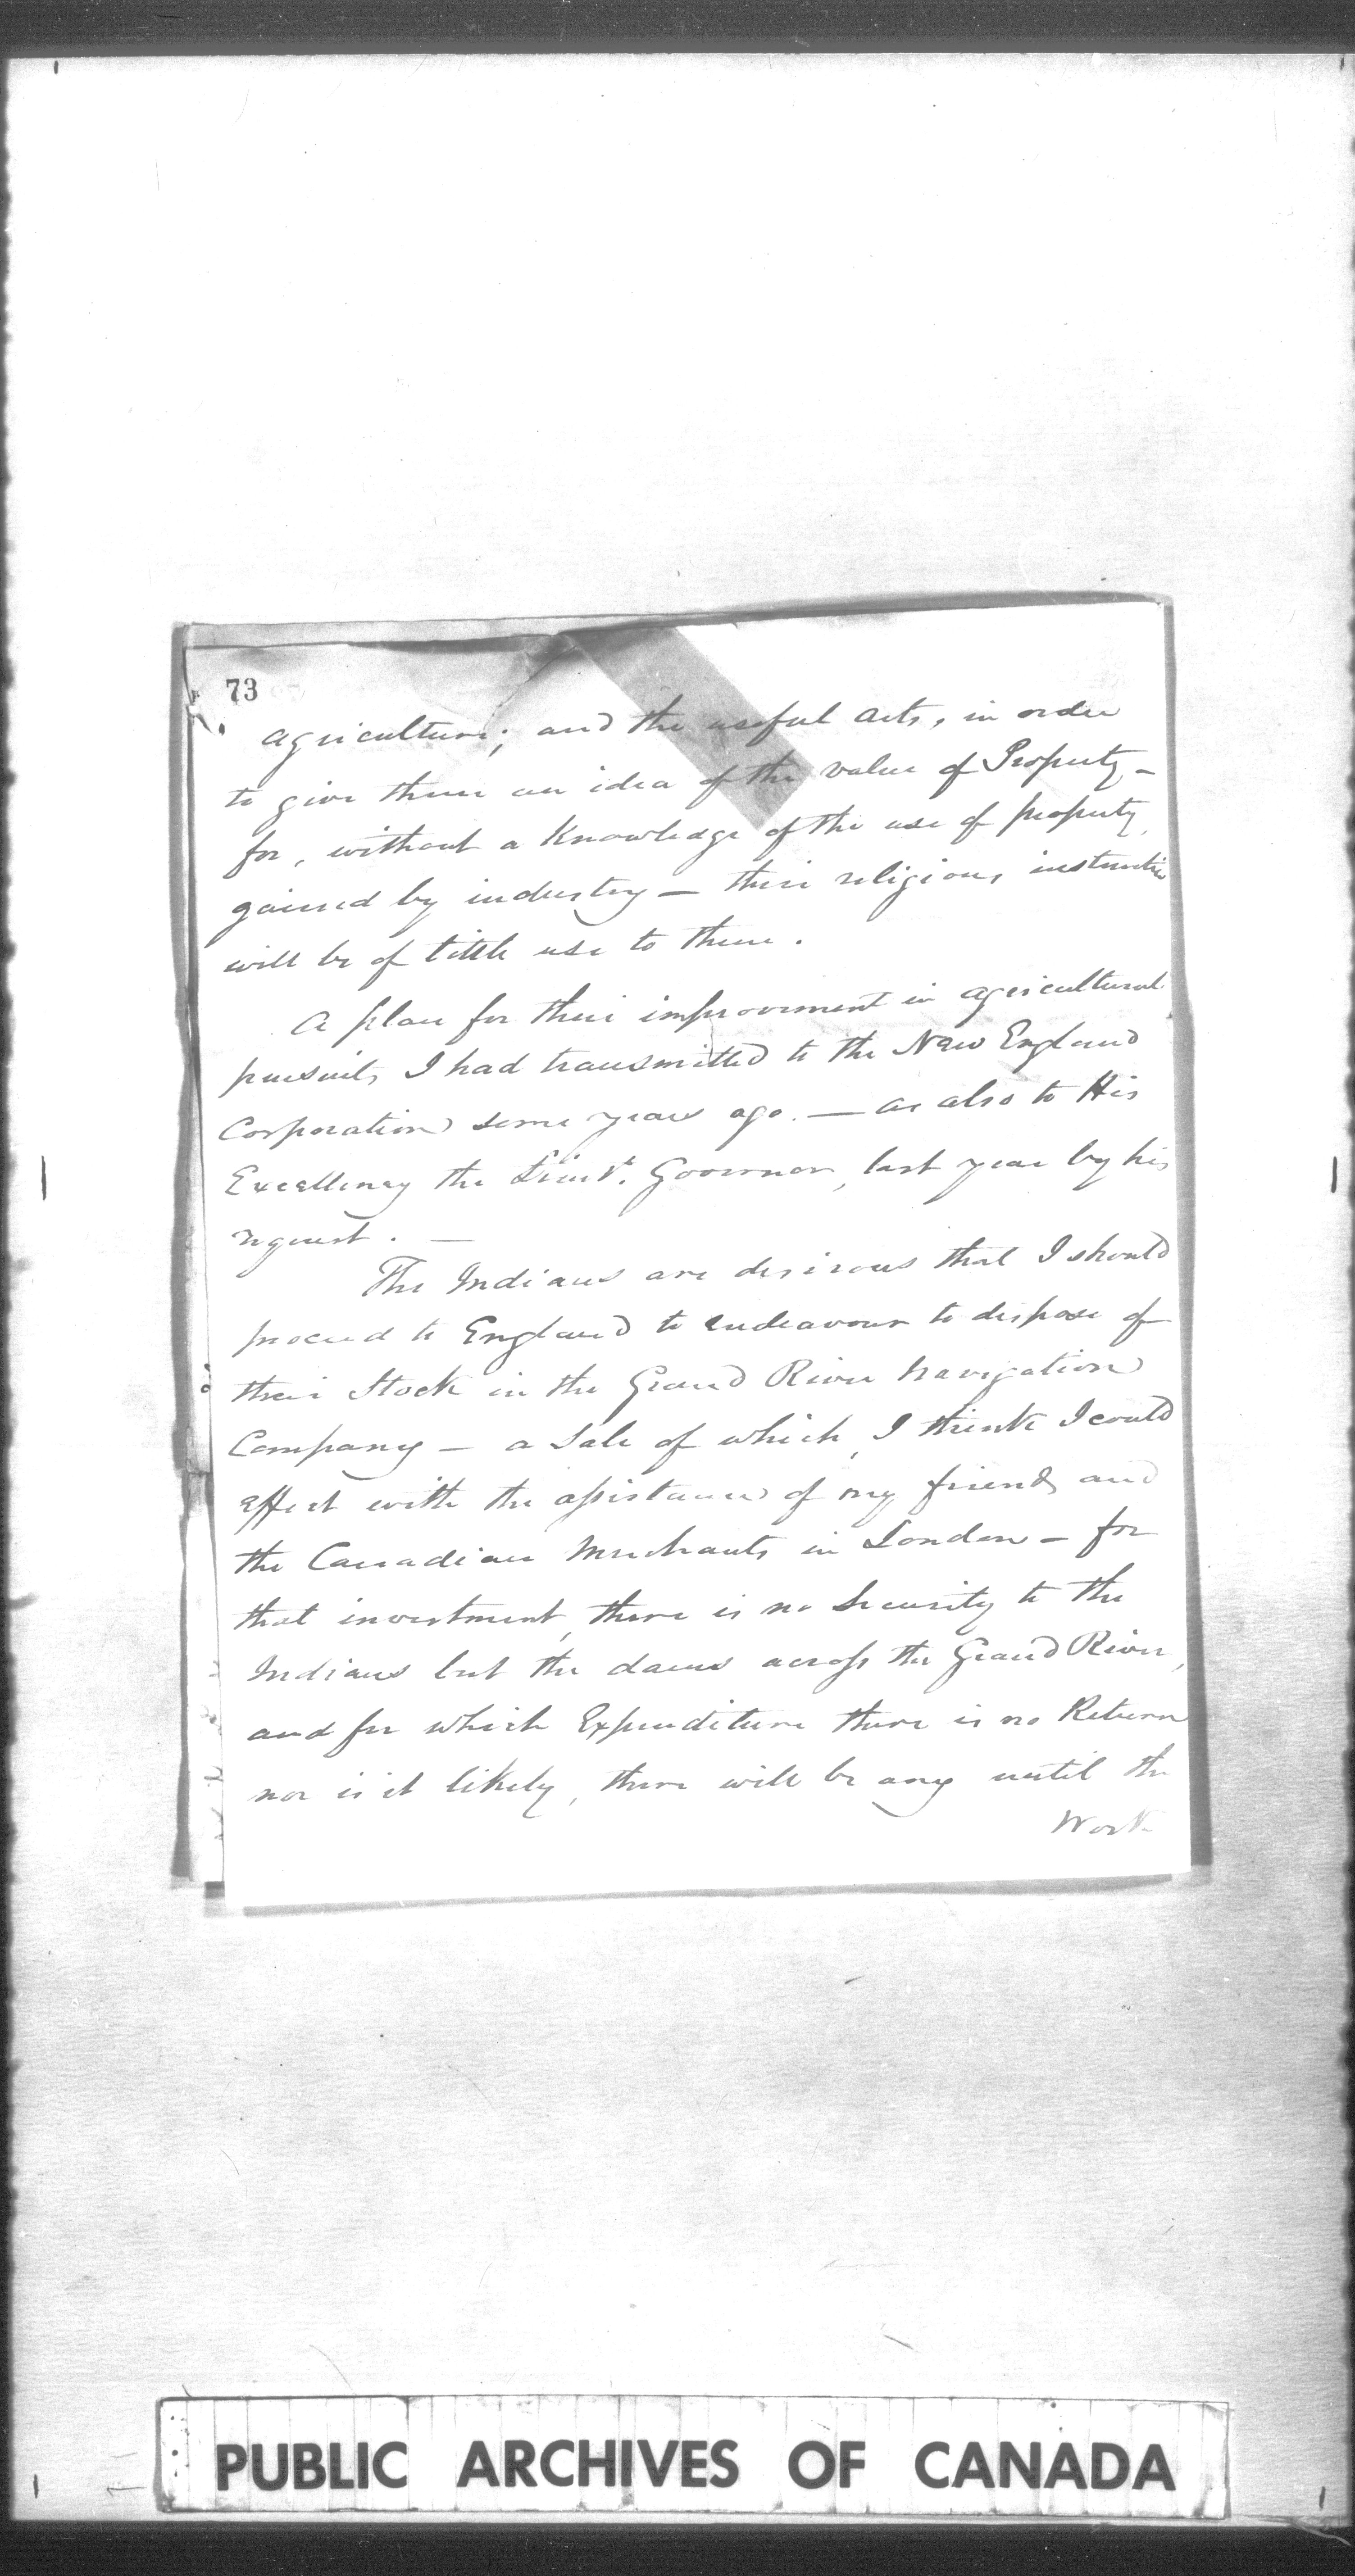 73
agriculture; and the useful arts, in order
to give them an idea of the value of Property –
for, without a Knowledge of the use of property,
gained by industry – their religious instruction
will be of little use to them.
A plan for their improvement in agricultural
pursuits, I had transmitted to the New England
Corporation some years ago. – as also to His
Excellency the Lieut. Governor, last year by his
request. –
The Indians are desirous that I should
proceed to England to endeavour to dispose of
their Stock in the Grand River Navigation
Company – a Sale of which, I think I could
effect with the assistance of my friends and
the Canadian Merchants in London – for
that investment, there is no Security to the
Indians but the dams across the Grand River,
and for which Expenditure there is no Return
nor is it likely, there will be any until the
Work
PUBLIC ARCHIVES OF CANADA